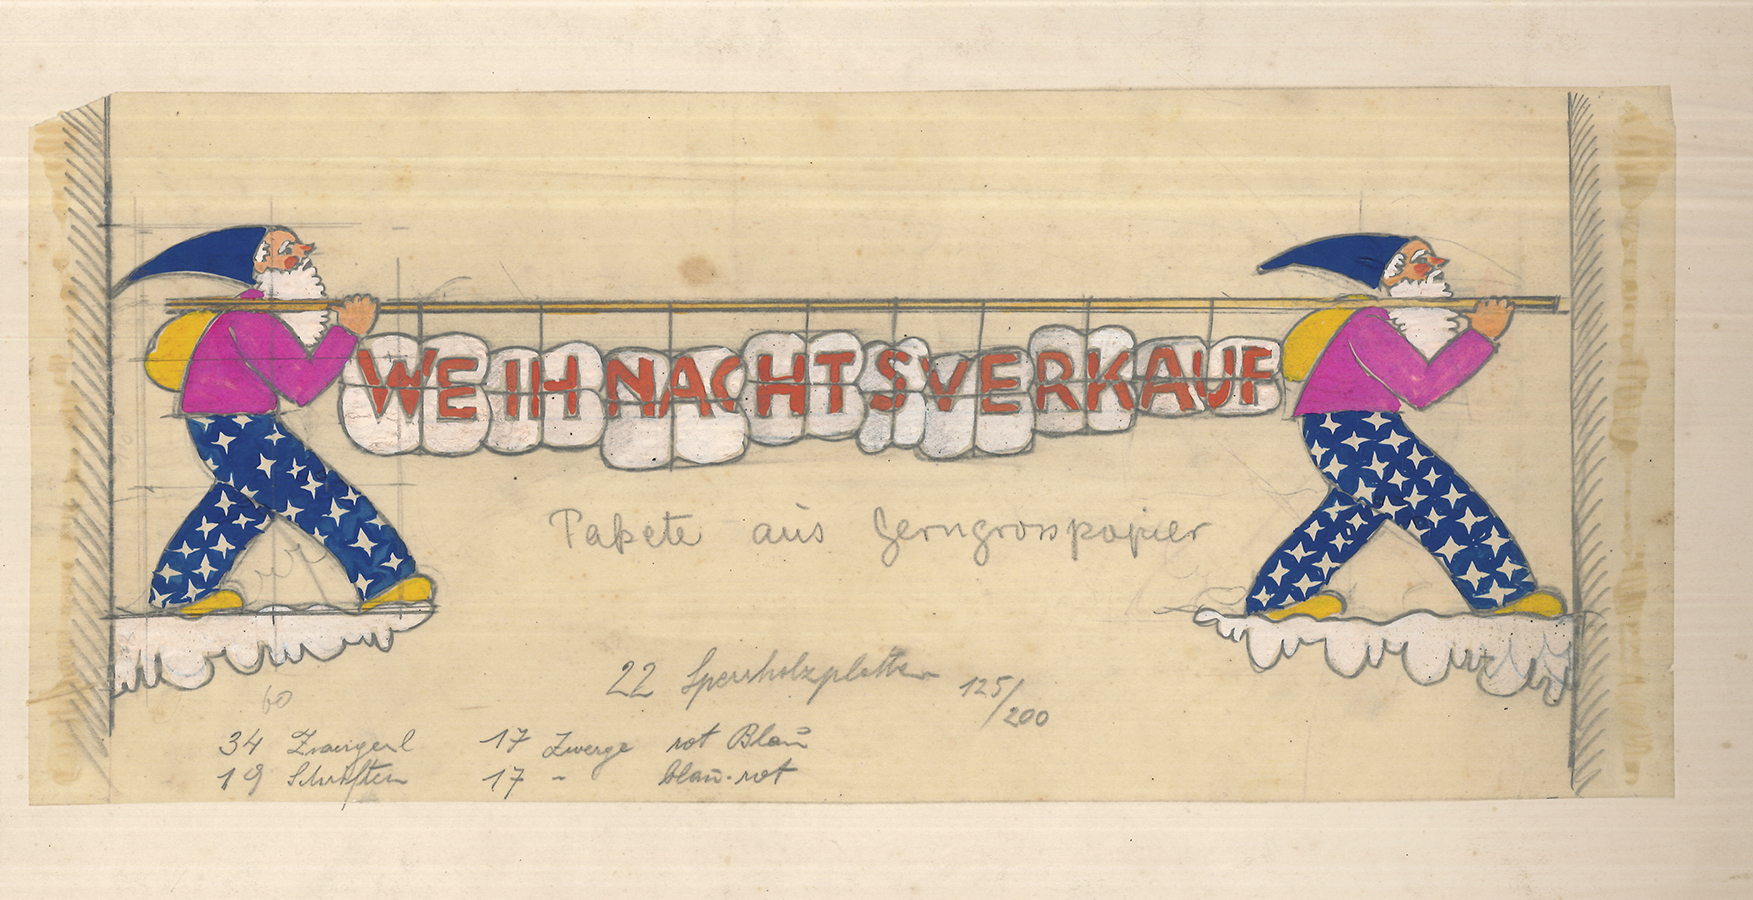 WEIHNACHTSVERKAUF
Pakete aus Gerngrosspapier
22 Sperrholzplatten 125/200
60
34 Zwergerl 17 Zwerge rot Blau
19 Schriften 17 - blau-rot